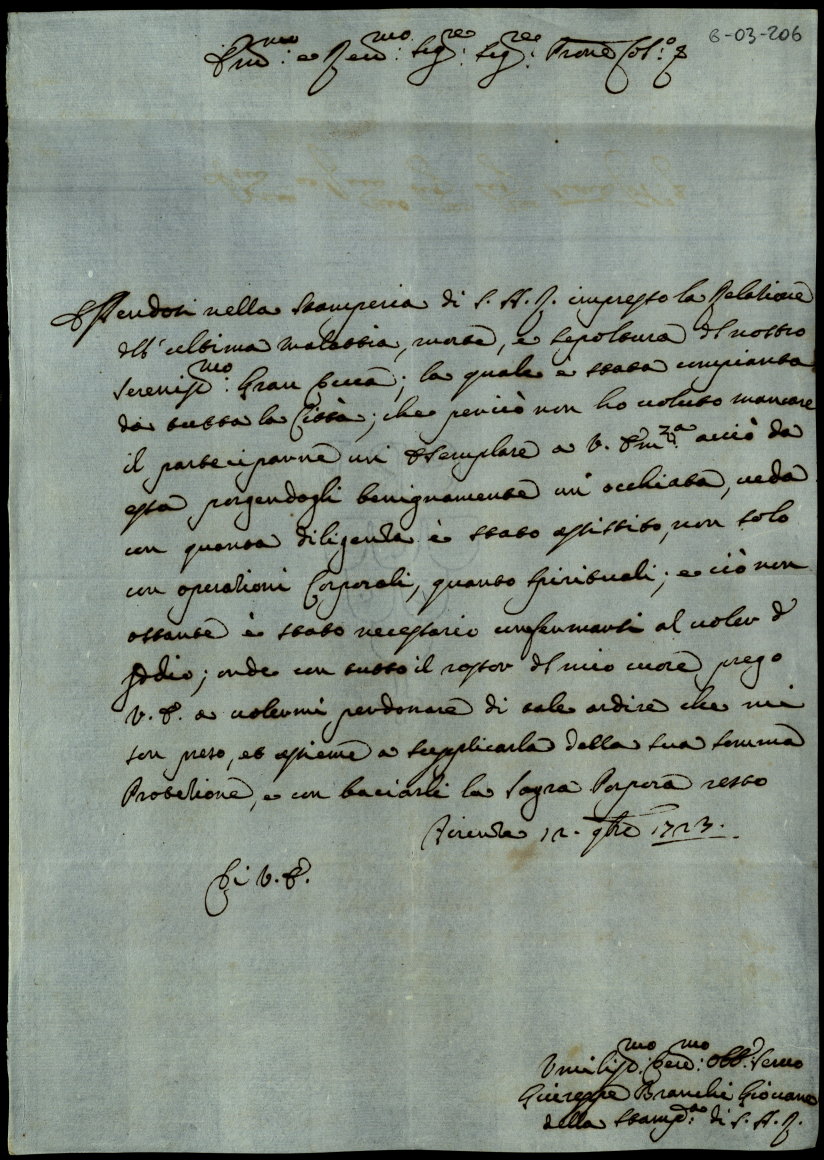 6-03-206
Em:mo e Rev:mo Sig:re Sig:re Prone Col:o
Essendosi nella Stamperia di S. A. R. impresso la Relatione
dell' ultima malattia, morte, e sepoltura del nostro
Serenis:mo Gran Duca; la quale è stata compianta
da tutta la Città; che perciò non ho voluto mancare
il parteciparne un' Esemplare a V. Em:za acciò da
essa porgendogli benignamente un' occhiata, veda
con quanta diligenza è stato assistito, non solo
con operationi Corporali, quanto Spirituali; e ciò non
ostante è stato necessario conformarsi al voler d'
Iddio; onde con tutto il rossor del mio cuore prego
V. E. a volermi perdonare di tale ardire che mi
son preso, et assieme a supplicarla della sua somma
Protetione, e con baciarli la Sagra Porpora resto
Firenze 12. 9bre 1723.
Di V. E.
Umilis:mo Dev:mo Obb: Servo
Giuseppe Branchi Giovane
della Stamp:a di S. A. R.